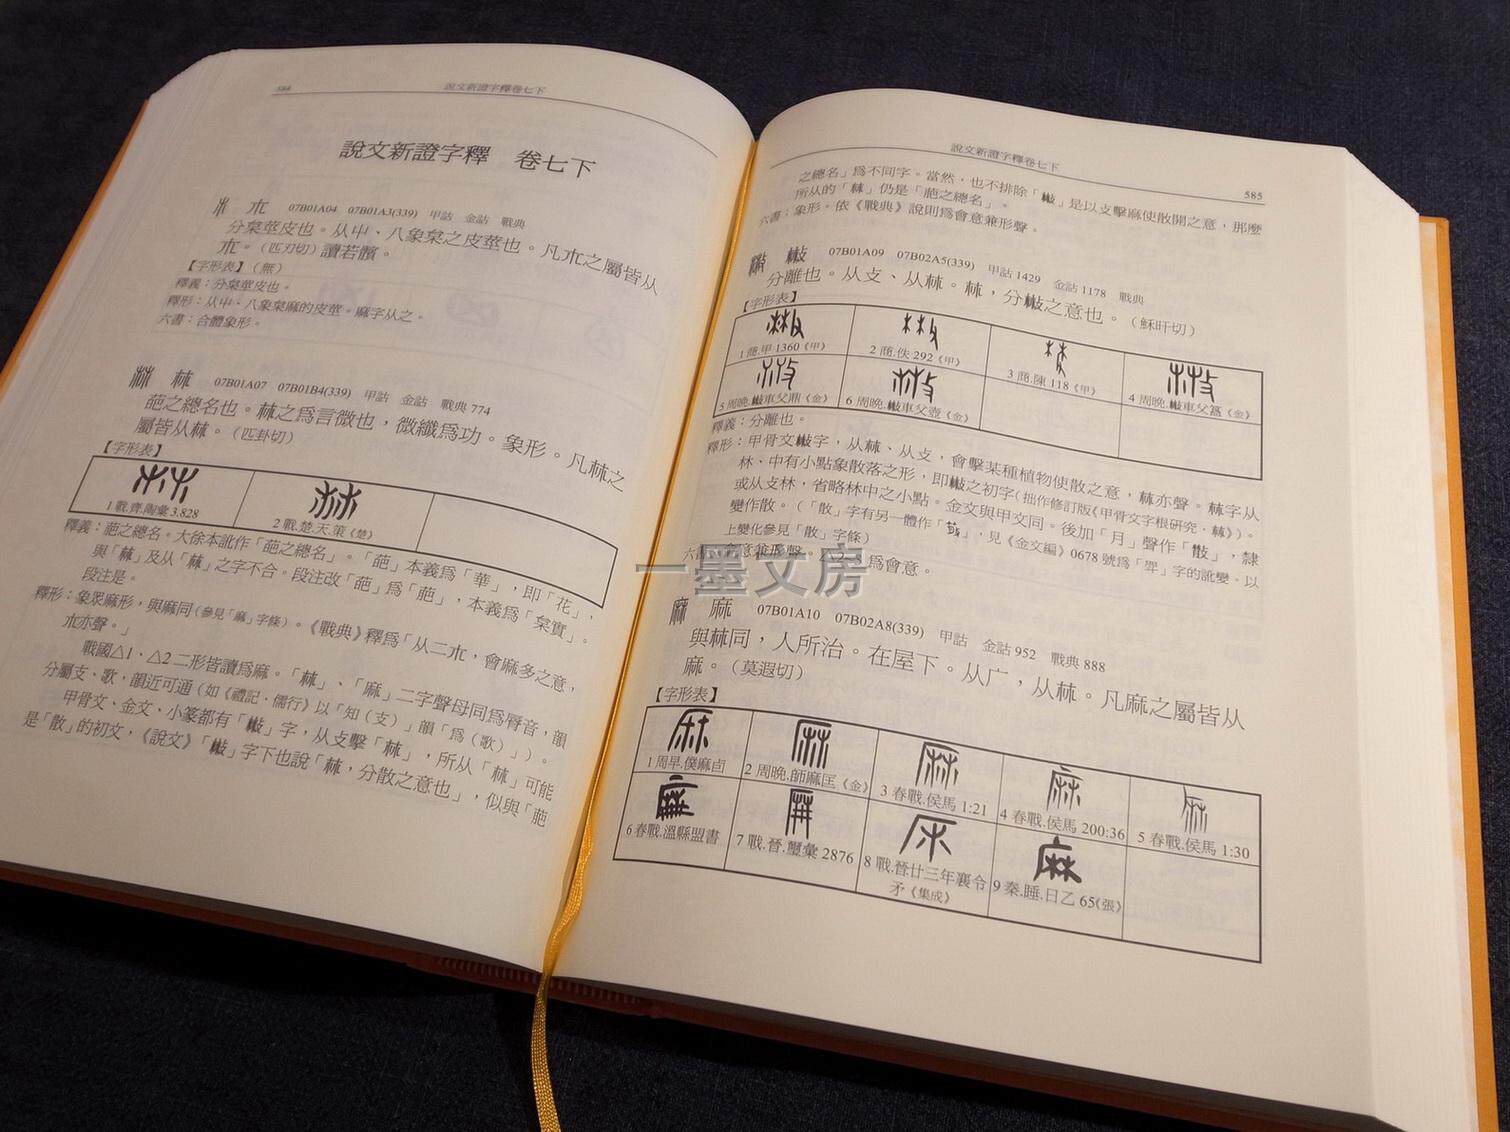 584
說文新證字釋卷七下
說文新證字釋 卷七下
𣎳 07B01A04 07B01A3(339) 甲詁 金詁 戰典
分枲莖皮也。从屮、八象枲之皮莖也。凡𣎳之屬皆从
𣎳。(匹刃切)讀若髕。
【字形表】(無)
釋義：分枲莖皮也。
釋形：从屮、八象枲麻的皮莖。麻字从之。
六書：合體象形。
𣏟 07B01A07 07B01B4(339) 甲詁 金詁 戰典 774
葩之總名也。𣏟之爲言微也，微纖爲功。象形。凡𣏟之
屬皆从𣏟。(匹卦切)
【字形表】
1 戰.齊.陶彙 3.828
2 戰.楚.天.策《楚》
釋義：葩之總名。大徐本訛作「葩之總名」。「葩」本義爲「華」，即「花」，
與「𣏟」及从「𣏟」之字不合。段注改「葩」爲「萉」，本義爲「枲實」。
段注是。
釋形：象眾麻形，與麻同(參見「麻」字條)。《戰典》釋爲「从二𣎳，會麻多之意，
𣎳亦聲。」
戰國△1、△2 二形皆讀爲麻。「𣏟」、「麻」二字聲母同爲脣音，韻
分屬支、歌，韻近可通（如《禮記·儒行》以「知（支）」韻「爲（歌）」）。
甲骨文、金文、小篆都有「𢿱」字，从攴擊「𣏟」，所从「𣏟」可能
是「散」的初文，《說文》「𢿱」字下也說「𣏟，分散之意也」，似與「萉
說文新證字釋卷七下
585
之總名」爲不同字。當然，也不排除「𢿱」是以攴擊麻使散開之意，那麼
所从的「𣏟」仍是「萉之總名」。
六書：象形。依《戰典》說則爲會意兼形聲。
𢿱 07B01A09 07B02A5(339) 甲詁 1429 金詁 1178 戰典
分離也。从攴、从𣏟。𣏟，分𢿱之意也。(穌旰切)
【字形表】
1 商.甲 1360《甲》
2 商.佚 292《甲》
3 商.陳 118《甲》
4 周晚.𢿱車父簋《金》
5 周晚.𢿱車父鼎《金》
6 周晚.𢿱車父壺《金》
釋義：分離也。
釋形：甲骨文𢿱字，从𣏟、从攴，會擊某種植物使散之意，𣏟亦聲。𣏟字从
林、中有小點象散落之形，即𢿱之初字(拙作修訂版《甲骨文字根研究·𣏟》)。
或从攴林，省略林中之小點。金文與甲文同。後加「月」聲作「散」，隸
變作散。(「散」字有另一體作「」，見《金文編》0678 號爲「斝」字的訛變。以
上變化參見「散」字條)
六書：會意兼形聲。爲會意。
一墨文房
麻 07B01A10 07B02A8(339) 甲詁 金詁 952 戰典 888
與𣏟同，人所治。在屋下。从广，从𣏟。凡麻之屬皆从
麻。(莫遐切)
【字形表】
1 周早.僕麻卣
2 周晚.師麻匡《金》
3 春戰.侯馬 1:21
4 春戰.侯馬 200:36
5 春戰.侯馬 1:30
6 春戰.溫縣盟書
7 戰.晉.璽彙 2876
8 戰.晉廿三年襄令
矛《集成》
9 秦.睡.日乙 65《張》